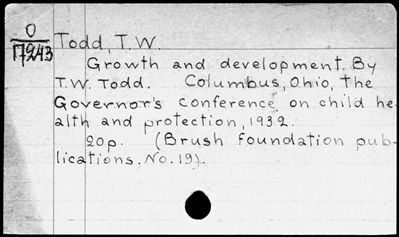 O
17243
Todd, T.W.
Growth and development. By
T.W. Todd. Columbus, Ohio, The
Governor's conference on child he-
alth and protection, 1932.
20p. (Brush foundation pub-
lications. No. 19).